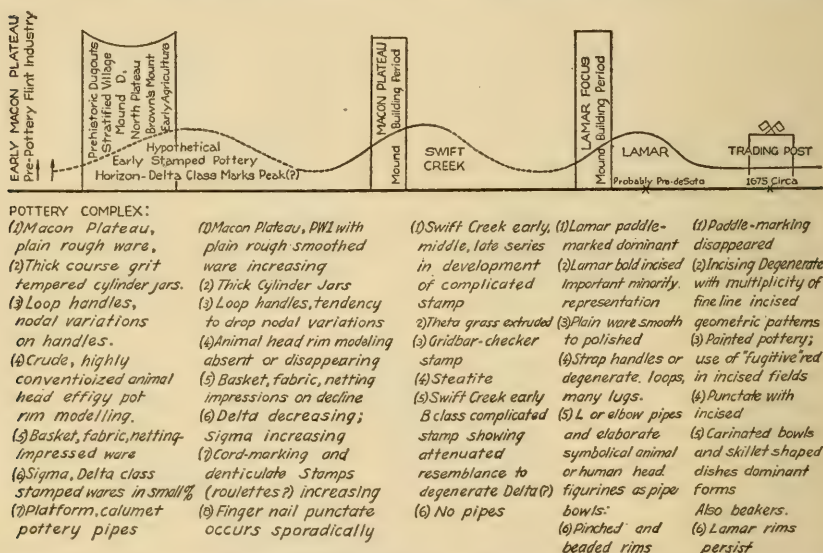 EARLY MACON PLATEAU
Pre-Pottery Flint Industry
Prehistoric Dugouts
Stratified Village
Mound D,
North Plateau
Brown's Mount
Early Agriculture
Hypothetical
Early Stamped Pottery
Horizon-Delta Class Marks Peak(?)
MACON PLATEAU
Mound Building Period
SWIFT
CREEK
LAMAR FOCUS
Mound Building Period
LAMAR
Probably Pre-deSoto
TRADING POST
1675 Circa
POTTERY COMPLEX:
(1)Macon Plateau,
plain rough ware,
(2)Thick course grit
tempered cylinder jars.
(3)Loop handles,
nodal variations
on handles.
(4)Crude, highly
conventioized animal
head effigy pot
rim modelling.
(5)Basket, fabric,netting-
impressed ware
(6)Sigma, Delta class
stamped wares in small%
(7)Platform, calumet
pottery pipes
(1)Macon Plateau, PW1 with
plain rough smoothed
ware increasing
(2) Thick Cylinder Jars
(3) Loop handles, tendency
to drop nodal variations
(4)Animal head rim modeling
absent or disappearing
(5) Basket, fabric, netting
impressions on decline
(6) Delta decreasing;
Sigma increasing
(7)Cord-marking and
denticulate Stamps
(roulettes?) increasing
(8) Finger nail punctate
occurs sporadically
(1)Swift Creek early,
middle, late series
in development
of complicated
stamp
2)Theta grass extruded
(3) Gridbar-checker
stamp
(4) Steatite
(5)Swift Creek early
B class complicated
stamp showing
attenuated
resemblance to
degenerate Delta(?)
(6) No pipes
(1)Lamar paddle-
marked dominant
(2)Lamar bold incised
Important minority.
representation
(3)Plain ware smooth
to polished
(4)Strap handles or
degenerate, loops,
many lugs.
(5) L or elbow pipes
and elaborate
symbolical animal
or human head
figurines as pipe
bowls:
(6)Pinched and
beaded rims
(1)Paddle-marking
disappeared
(2)Incising Degenerate
with multiplicity of
fine line incised
geometric patterns
(3) Painted pottery;
use of "fugitive" red
in incised fields
(4) Punctate with
incised
(5) Carinated bowls
and skillet shaped
dishes dominant
forms
Also beakers.
(6) Lamar rims
persist